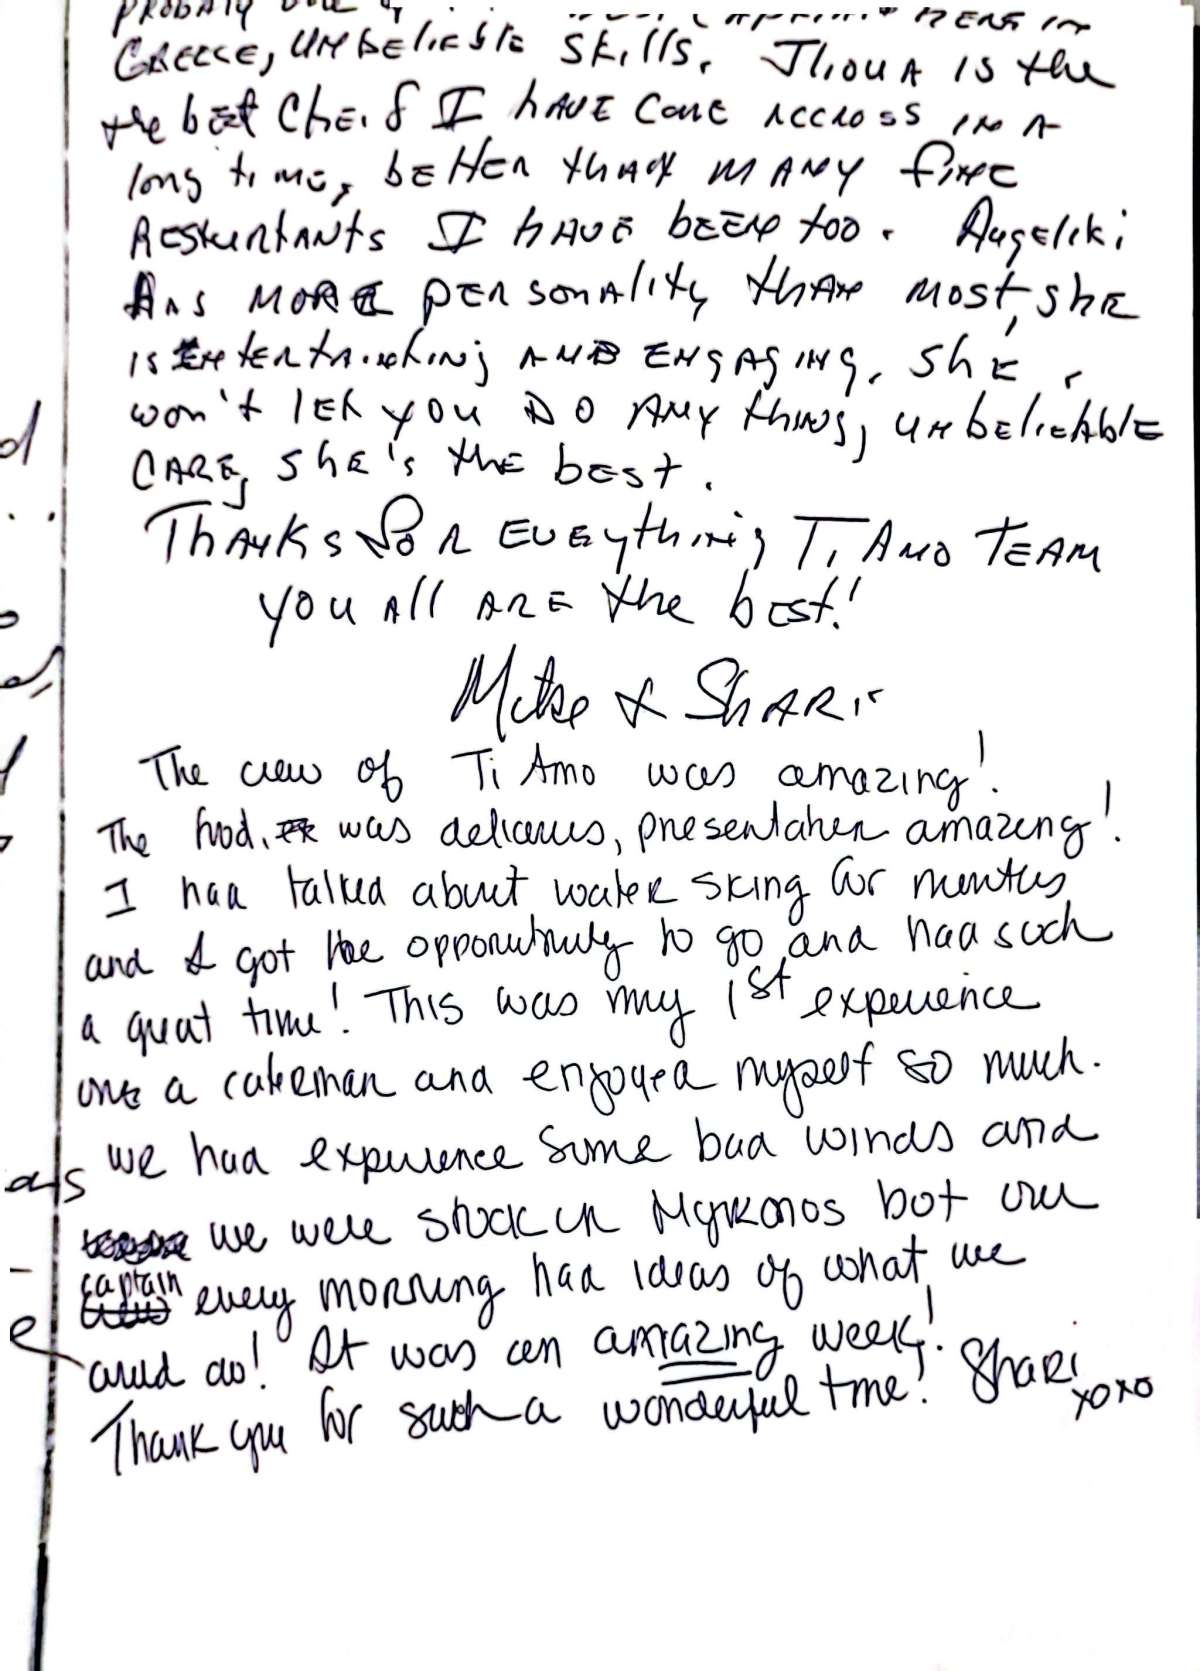 PROBABLY ONE of
GREECE, UNBELIEVABLE SKILLS. JLIOUA IS the
the best Cheif I HAVE COME ACCROSS IN A
long time, better thAN MANY fine
RESTURTANTS I HAVE bEEN too. ANgEliki
HAS MORE pERSONAlity thAN MOST, ShE
IS ENTERTAINING AND ENgAgING, ShE
won't let YOU DO ANY thing, UNbELIEVAblE
CARE, ShE's the best.
ThANKS FOR EVEythINg TI AMO TEAM
YOU All ARE the best!
Mike & SHARI
The crew of Ti Amo was amazing!
The food was delicious, presentation amazing!
I had talked about water sking for months
and I got the opportunity to go and had such
a great time! This was my 1st experience
one a cateman and enjoyed myself so much.
we had experience some bad winds and
we were stuck in Mykonos but our
captain every morning had ideas of what we
could do! It was an amazing week!
Thank you for such a wonderful time! Shari
xoxo
d
as
e